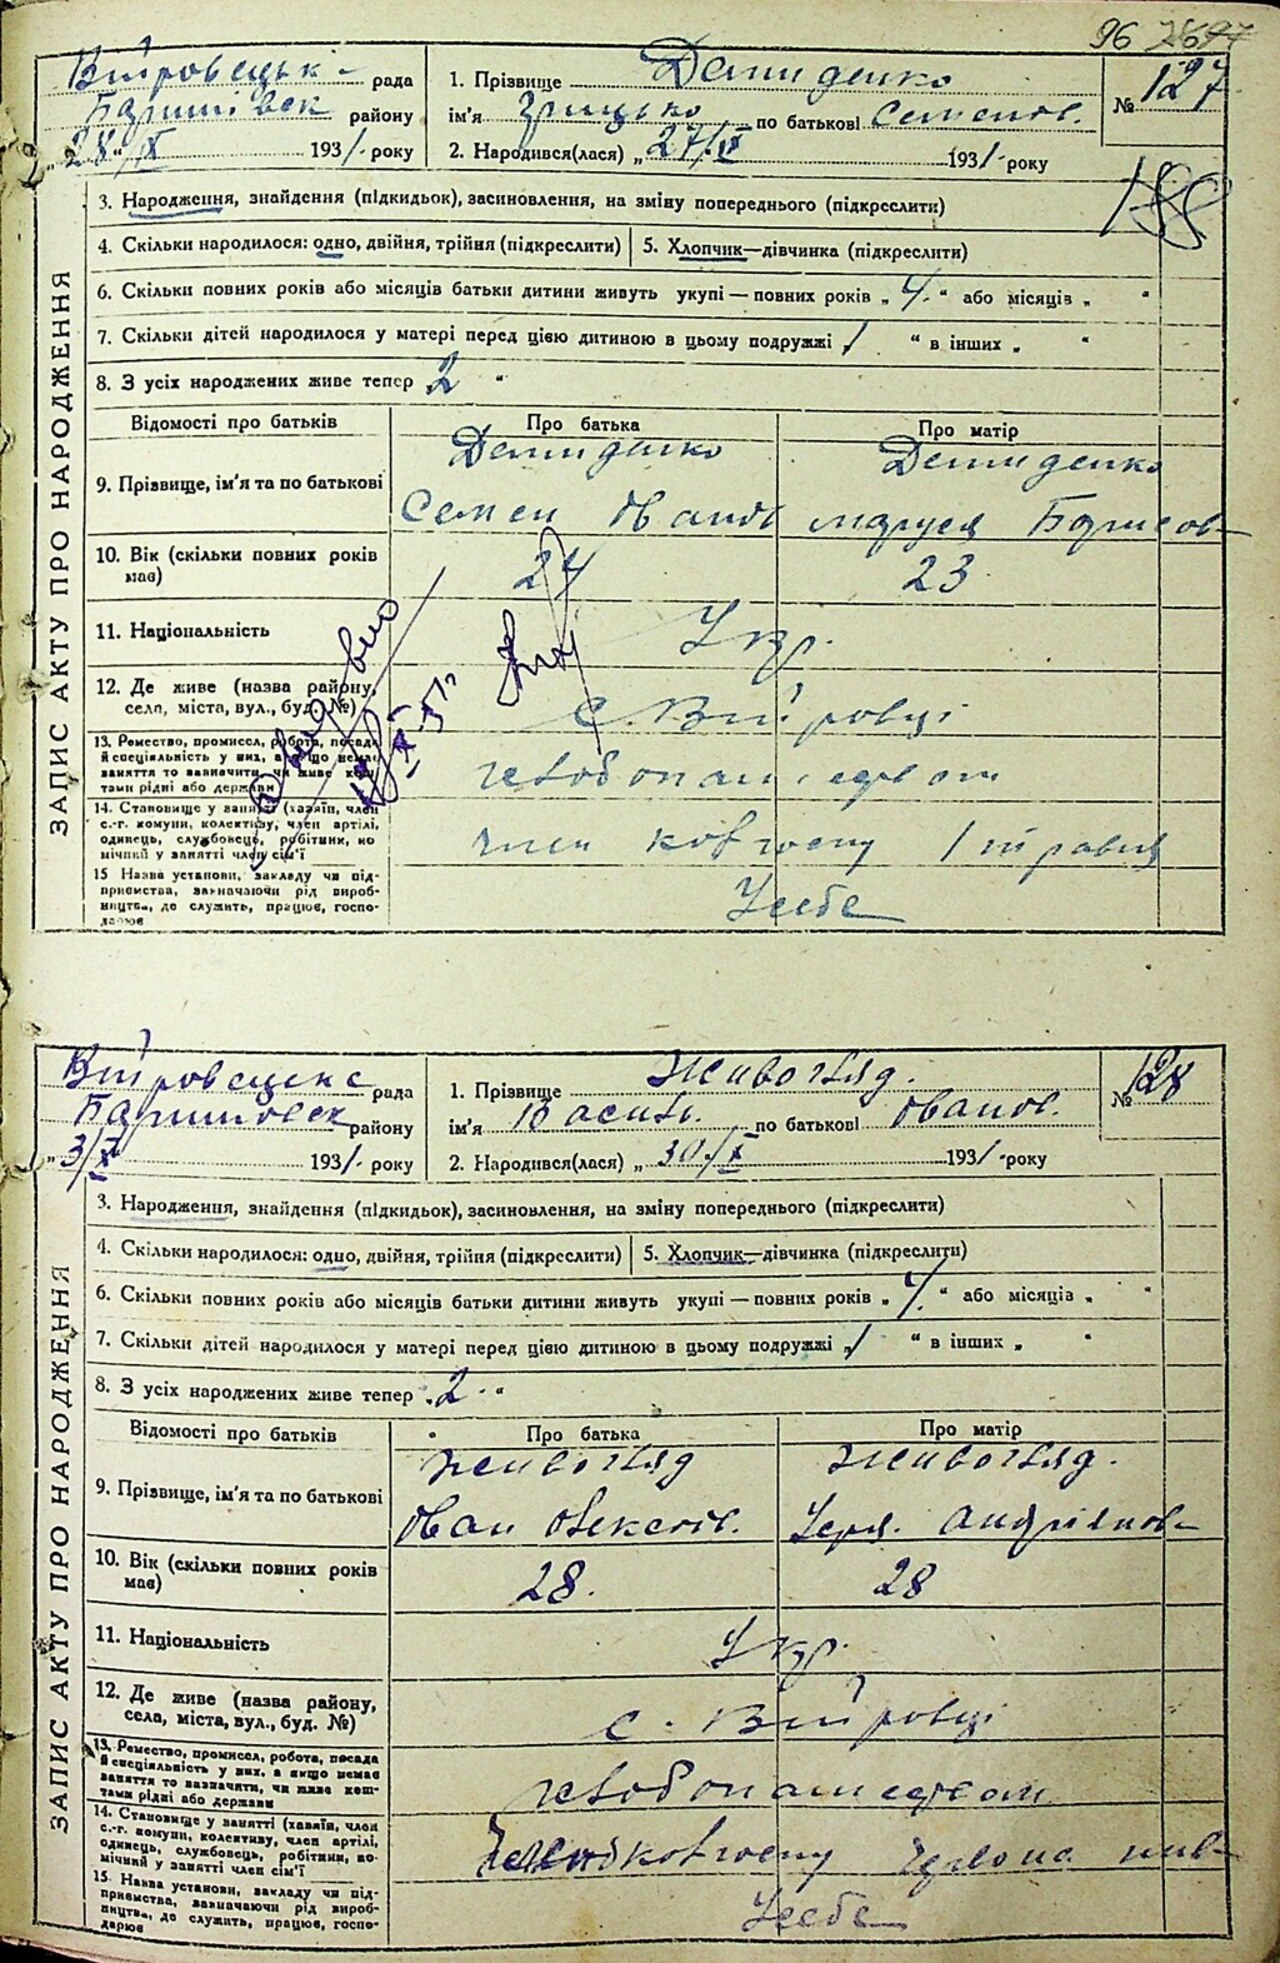 96
Війровецьк рада
Баришівськ району
„28"/IX 1931 року
1. Прізвище Демиденко
№ 127
ім'я Грицько по батькові Семенов.
2. Народився(лася) „27/IX 1931 року
188
ЗАПИС АКТУ ПРО НАРОДЖЕННЯ
3. Народження, знайдення (підкидьок), засиновлення, на зміну попереднього (підкреслити)
4. Скільки народилося: одно, двійня, трійня (підкреслити) 5. Хлопчик—дівчинка (підкреслити)
6. Скільки повних років або місяців батьки дитини живуть укупі — повних років „ 4. " або місяців „ "
7. Скільки дітей народилося у матері перед цією дитиною в цьому подружжі „ 1 " в інших „ "
8. З усіх народжених живе тепер „ 2 "
Відомості про батьків Про батька Про матір
9. Прізвище, ім'я та по батькові
Демиденко Демиденко
Семен Іванов Маруся Борисов
10. Вік (скільки повних років має) 24 23
11. Національність Укр.
12. Де живе (назва району, села, міста, вул., буд. №) с. Війровці
13. Ремество, промисел, робота, посада й спеціяльність у них, а якщо немає заняття то вазначити, чи живе коштами рідні або держави хлібопашеством
14. Становище у занятті (хазяїн, член с.-г. комуни, колективу, член артілі, одинець, службовець, робітник, помічний у занятті член сім'ї член колгоспу
15 Назва установи, закладу чи підприємства, вазначаючи рід виробництва, де служить, працює, господарює У себе
Війровецьке рада
Баришовськ району
„3/X 1931 року
1. Прізвище Живогляд.
№ 128
ім'я Василь. по батькові Іванов.
2. Народився(лася) „ 30/X 1931 року
ЗАПИС АКТУ ПРО НАРОДЖЕННЯ
3. Народження, знайдення (підкидьок), засиновлення, на зміну попереднього (підкреслити)
4. Скільки народилося: одно, двійня, трійня (підкреслити) 5. Хлопчик—дівчинка (підкреслити)
6. Скільки повних років або місяців батьки дитини живуть укупі — повних років „ 4. " або місяців „ "
7. Скільки дітей народилося у матері перед цією дитиною в цьому подружжі „ 1 " в інших „ "
8. З усіх народжених живе тепер „ 2 "
Відомості про батьків Про батька Про матір
9. Прізвище, ім'я та по батькові
Живогляд Живогляд.
Іван Олексіїв. Андріянов
10. Вік (скільки повних років має) 28. 28
11. Національність Укр.
12. Де живе (назва району, села, міста, вул., буд. №) с. Війровці
13. Ремество, промисел, робота, посада й спеціяльність у них, а якщо немає заняття то вазначити, чи живе коштами рідні або держави хлібопашеством
14. Становище у занятті (хазяїн, член с.-г. комуни, колективу, член артілі, одинець, службовець, робітник, помічний у занятті член сім'ї колгоспу Червона нив
15. Назва установи, закладу чи підприємства, вазначаючи рід виробництва, де служить, працює, господарює У себе